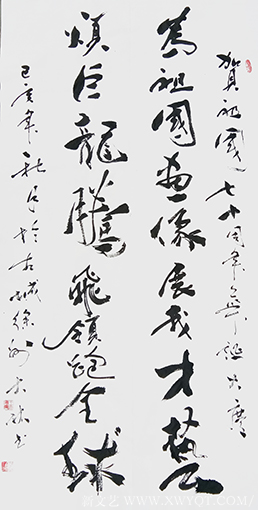 賀祖國七十周年華誕大慶
為祖國畫像展我才藝
頌巨龍騰飛領跑全球
己亥年秋月於古城徐州書
新文艺 WWW.XWYOT.COM